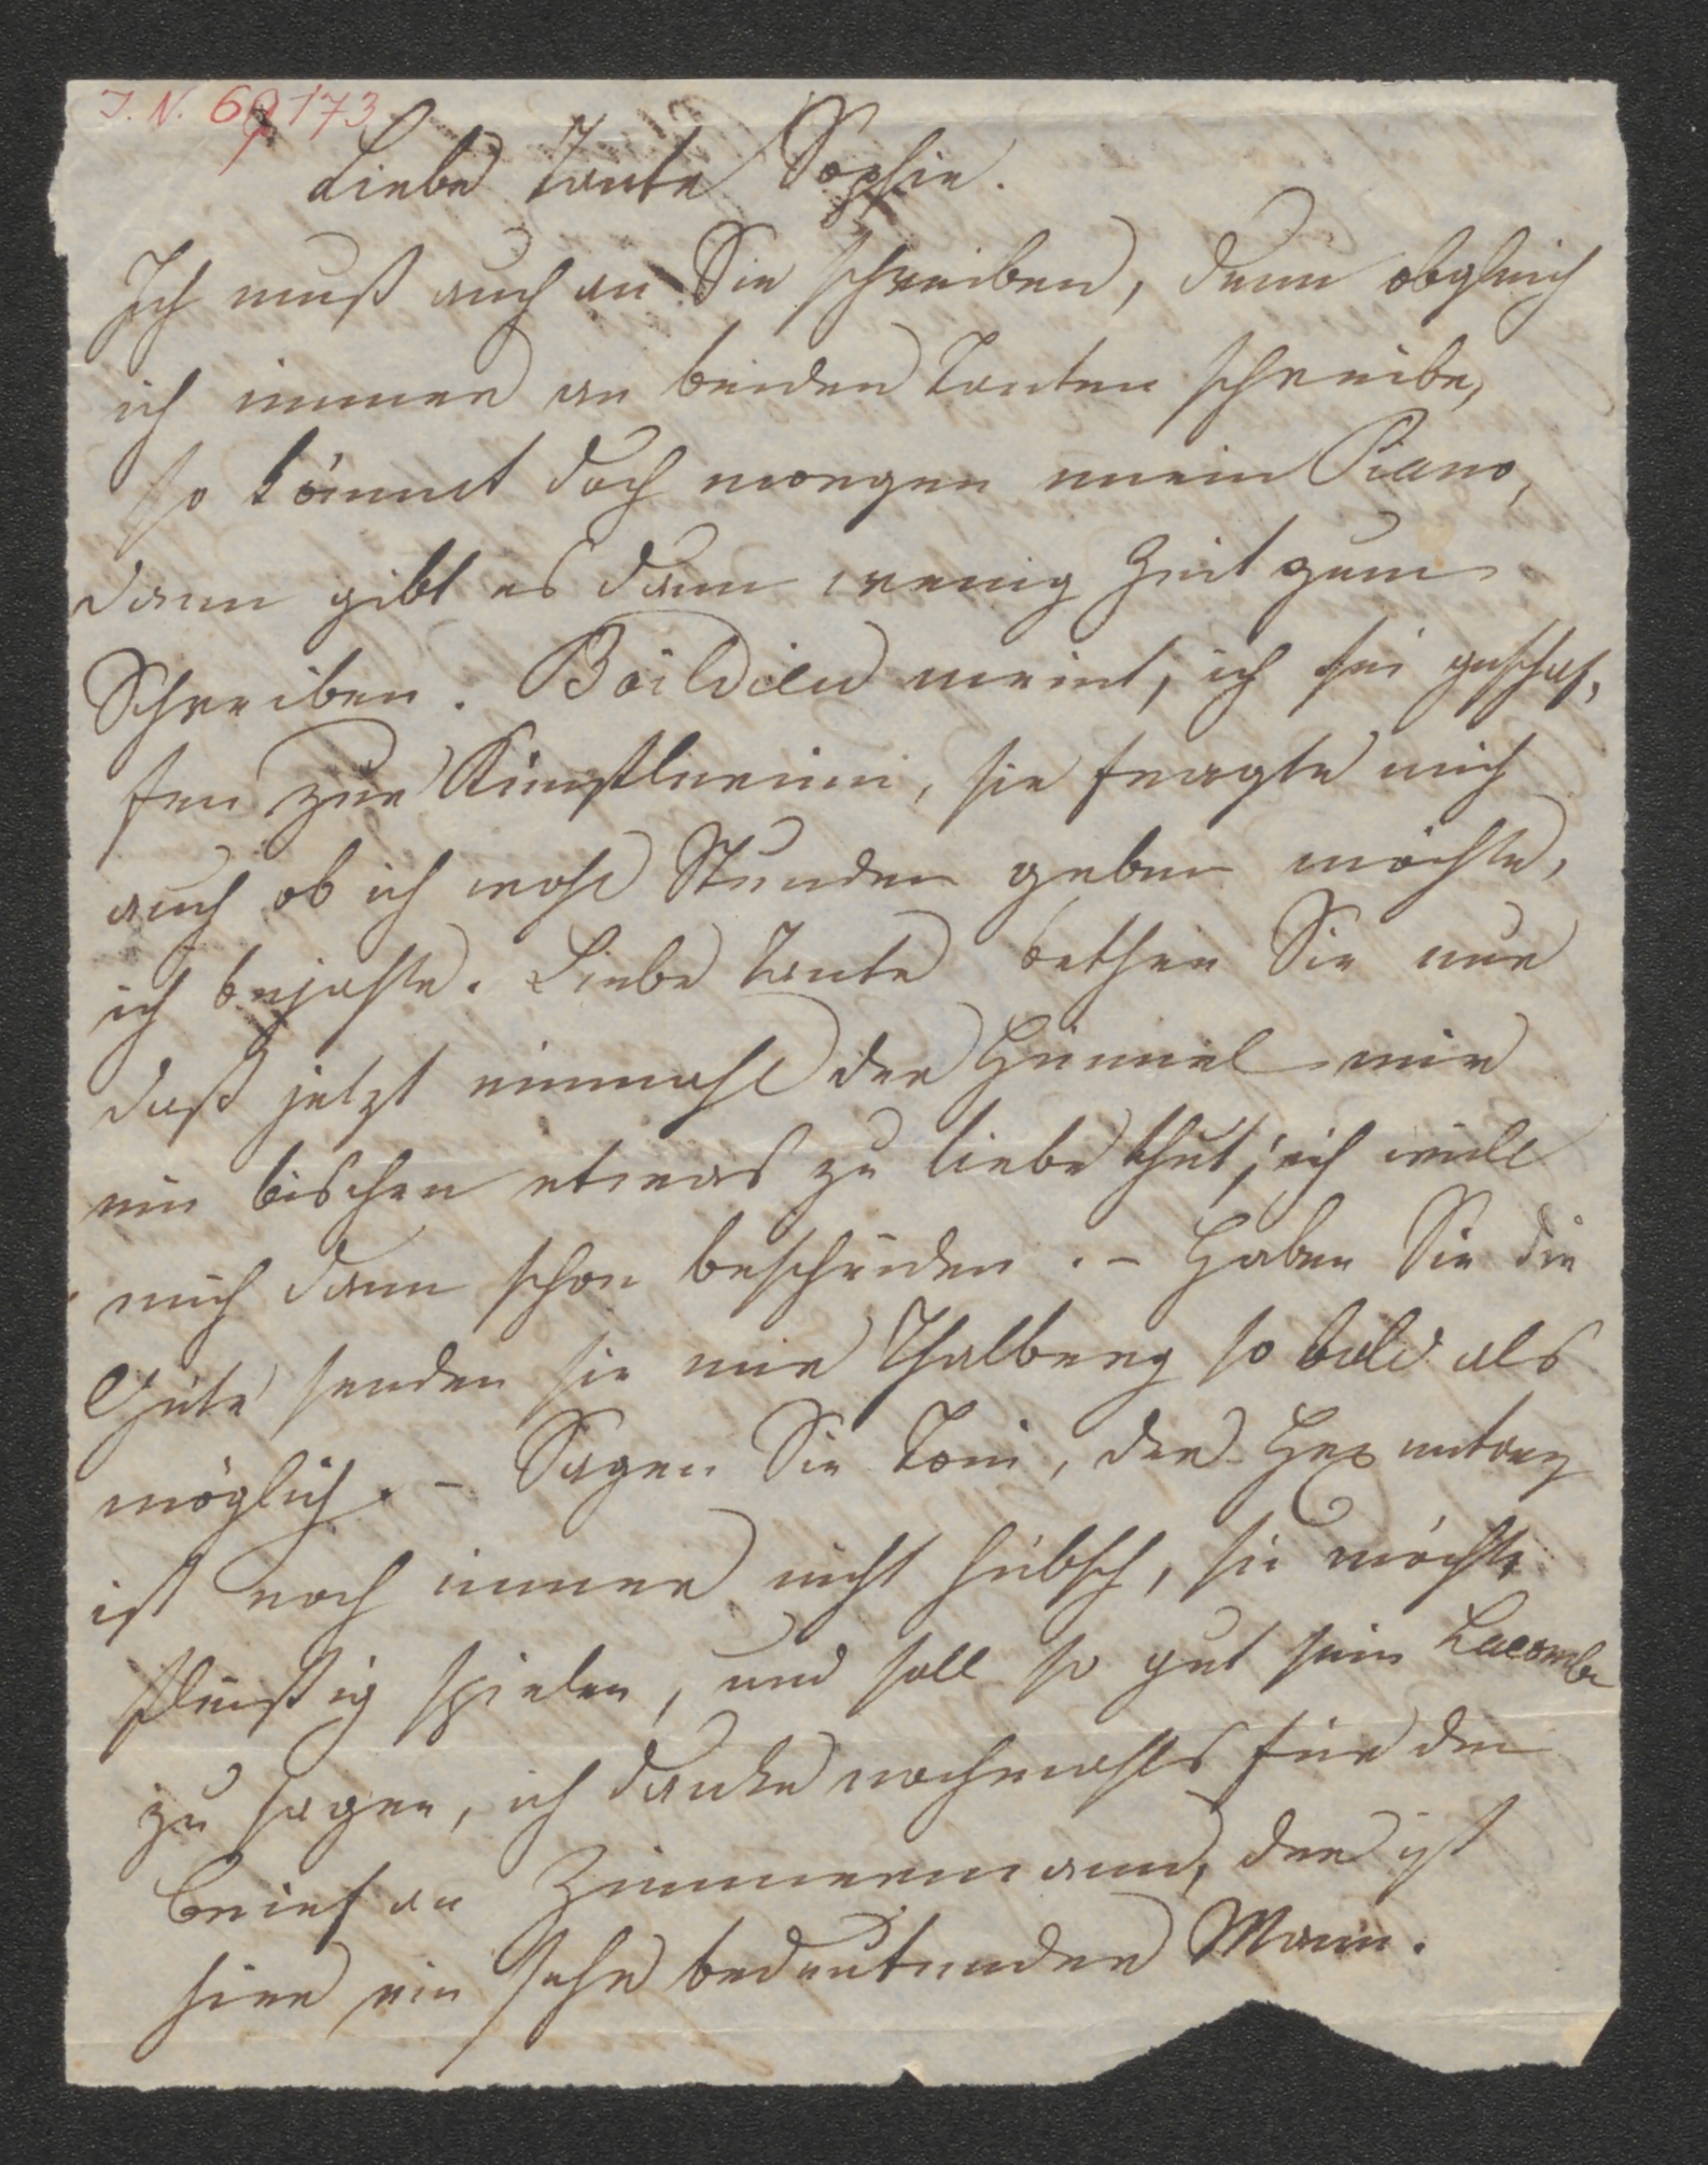 I. N. 69173
Liebe Tante Sophie.
Ich muß auch an Sie schreiben, denn obgleich
ich immer an beiden Tanten schreibe,
so kömmt doch morgen mein Piano,
dann gibt es dann wenig Zeit zum
Schreiben. Boildieu meint, ich sei geschaf,
fen zur Künstlerinn, sie fragte mich
auch ob ich wohl Stunden geben möchte,
ich bejahte. Liebe Tante bethen Sie nur
daß jetzt einmahl der Himmel mir
ein bischen etwas zu liebe thut, ich will
mich dann schon bescheiden. - Haben Sie die
Güte senden sie mir Thalberg so bald als
möglich. - Sagen Sie Toni, der
ist noch immer nicht hübsch, sie möchte
fleißig spielen, und soll so gut sein Lacombe
zu sagen, ich danke nochmahls für den
Brief an Zimmermann, der ist
hier ein sehr bedeutender Mann.